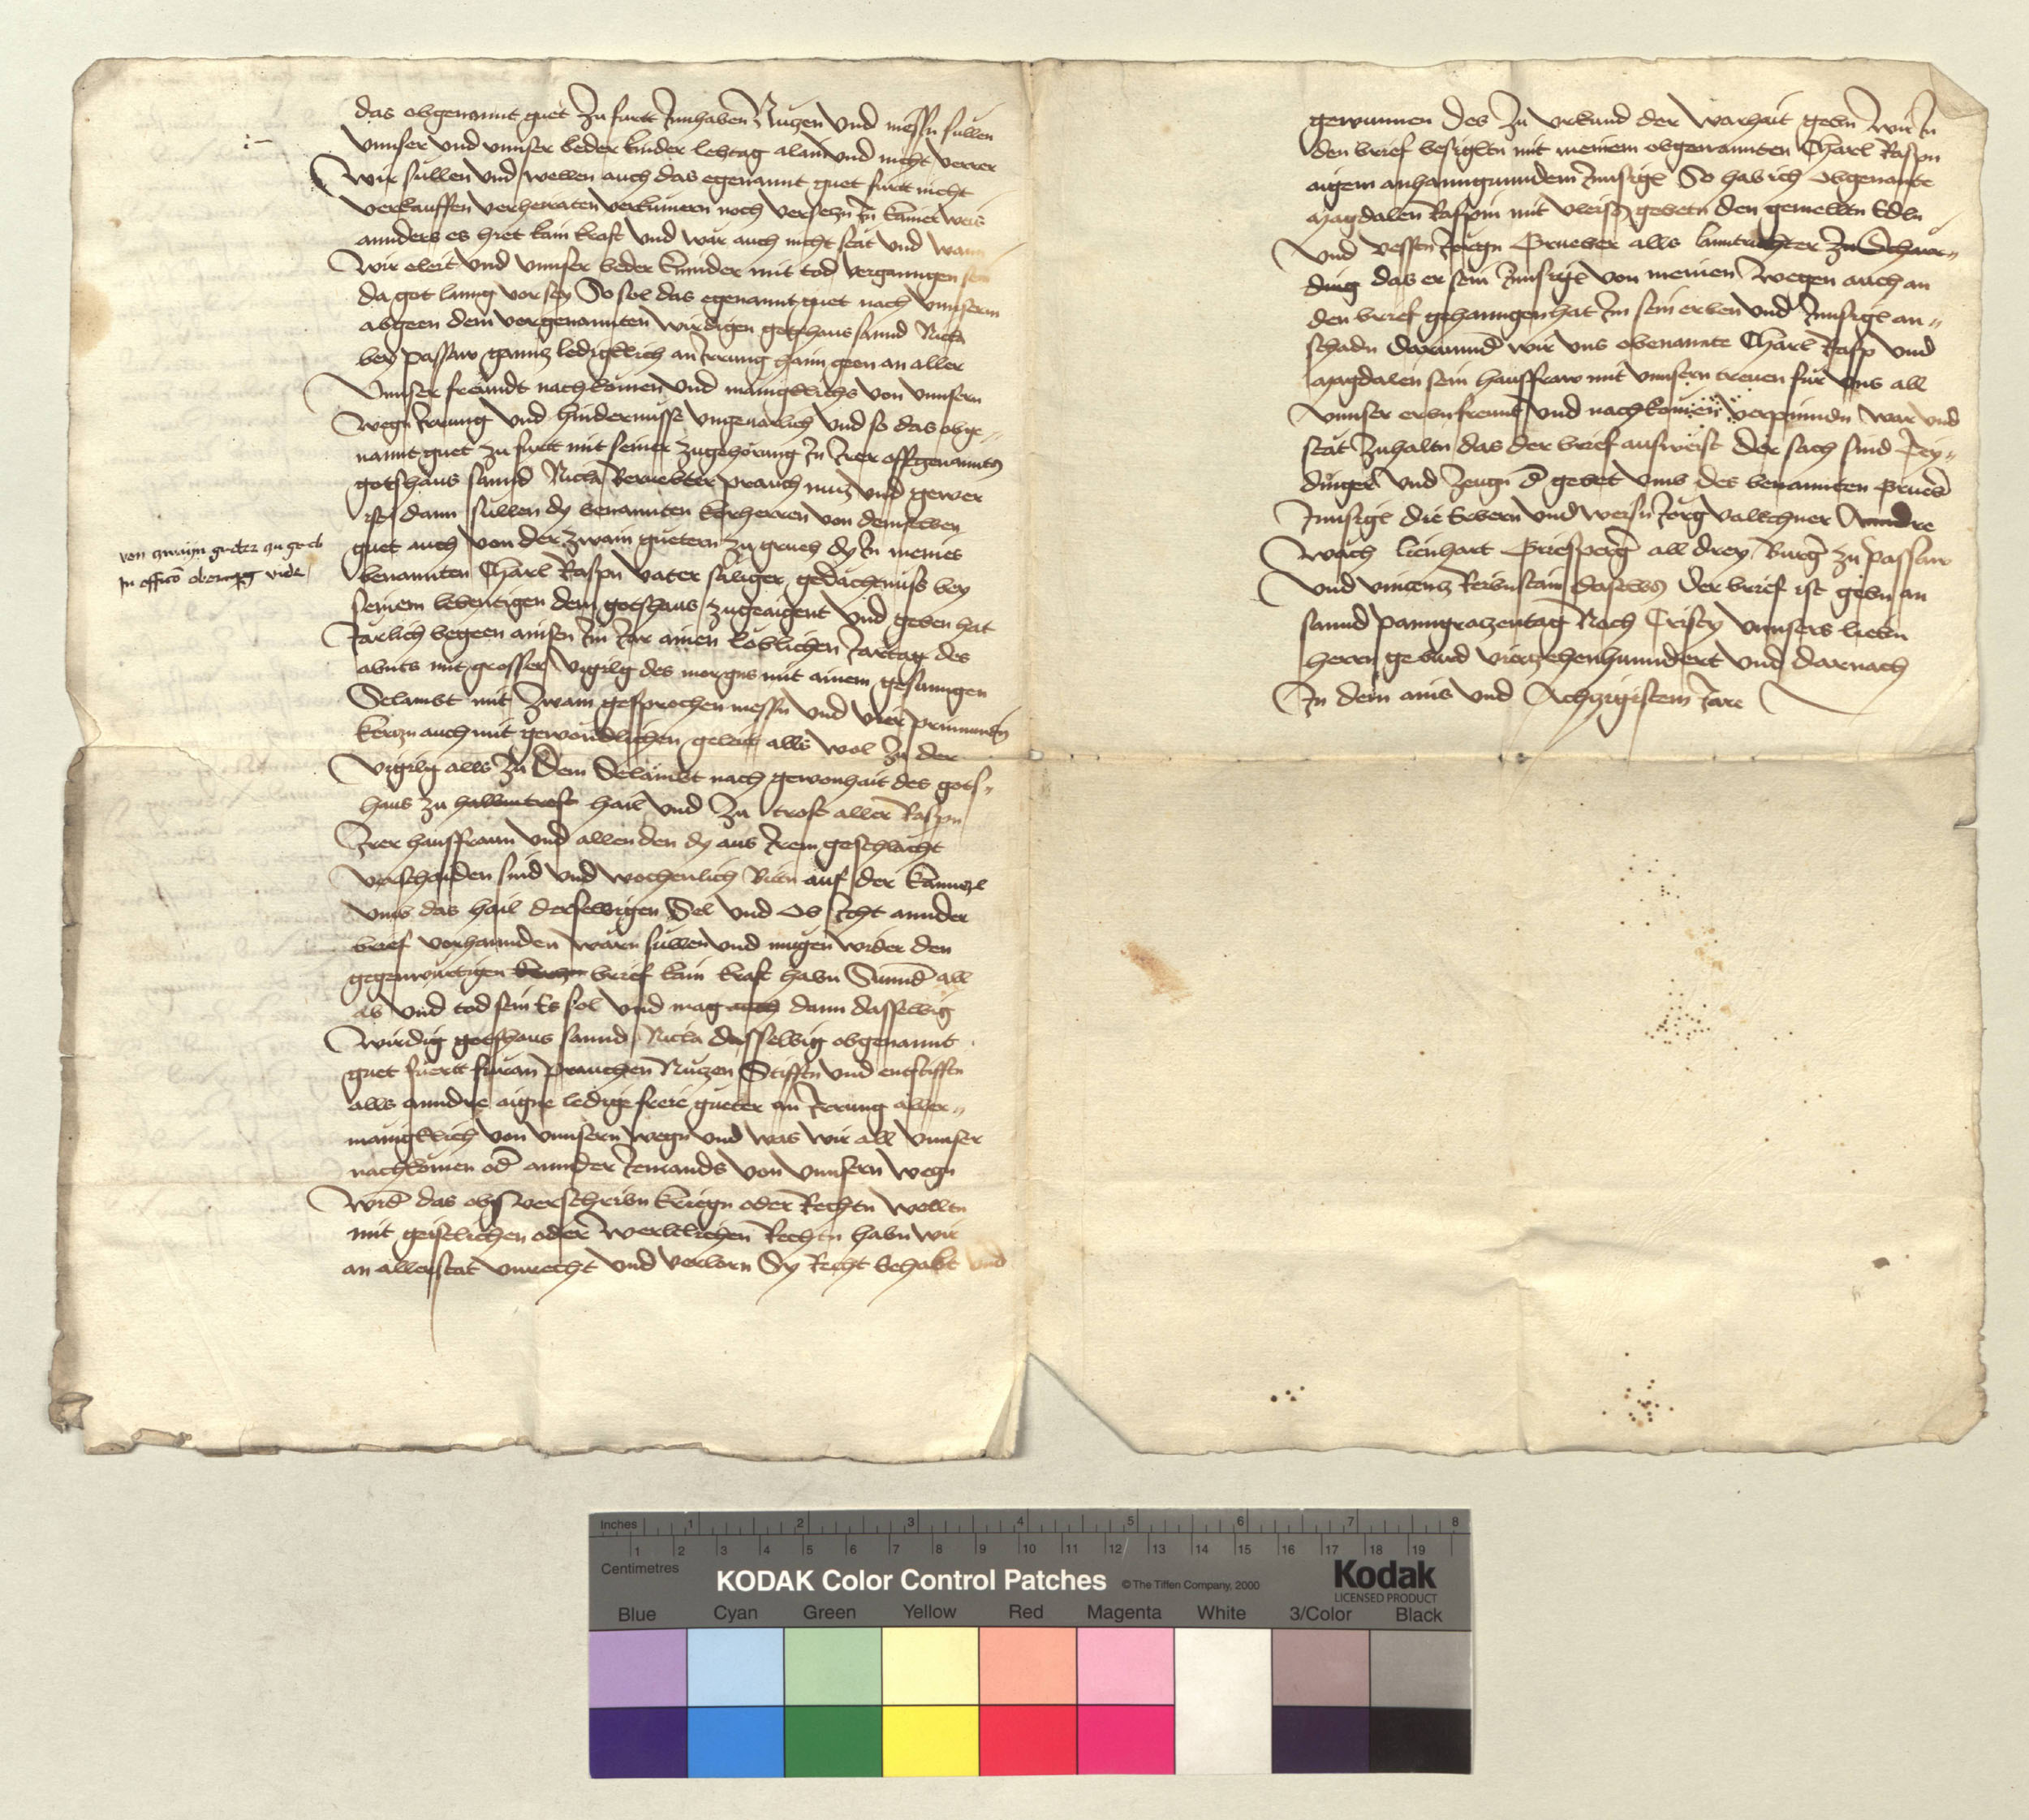 das obgenannt guet zu furtt Innhaben Nutzen und niessn sullen
unnser und unnser beder kinder lebtag alain und nicht verrer
Wir sullen und wellen auch das egenannt guet furtt nicht
verkauffen verheiraten verkumern noch versetzn In kainer weis
annders es hiet kain kraft und war auch nicht stat und wann
wir eleit und unnser beder kinnder mit tod vergannngen sein
da got lanng vor sey So sol das egenannt guet nach unnserm
abgeen dem vorgenannten wirdigen gotzhaus sannd Nicla
bey passaw ganntz ledigklich an Irrung haim geen an aller
unnser freundt nachkomen und manigklichs von unnsern
wegn Irrung und hindernusse ungevarlich und so das obge-
nannt guet zu furtt mit seiner zugehorung In Irer offtgenannts
gotshaus sannd Nicla beruebter prauch nutz und gewer
ist dann sullen dy benannten korherren von demselben
guet auch von der zwain guetern zu grueb dy In meines
benannten Charl Raspn vater saliger gedachtnuss bey
seinem lebentigen dem gotshaus zugeaigent und geben hat
Jarlich begeen ainsn Im Jar ainen loblichen Jartag des
abnts mit grosser vigilg des morgns mit ainem gesungen
Selambt mit zwain gesprochen messn und vier prinnundn
kertzn auch mit gewondlichen geleut alls wol zu der
vigilg alls zu dem Selambt nach gewonhait des gots-
haus zu hail und zu trost aller Raspn
Irer hausfraun und allen den dy aus Irem geschlacht
verschaiden sind und wochenlich bittn auf der kanntzl
umb das hail derselbigen Sel und Ob Icht annder
brief vorhannden warn sullen und mugen wider den
gegenwurtigen brief kain kraft habn Sunnd all
ab und tod sein Es sol und mag auch dann dasselbig
wirdig gotshaus sannd Nicla dasselbig obgenannt
guet fuertt furan prauchen Nutzen Stifftn und entstifftn
alls anndre aigne ledige freie gueter an Irrung aller-
manigklich von unnsern wegn und was wir all unnser
nachkomen od annder Jemands von unnsern wegn
wid das obg verschreibn kriegn oder Rechtn wolltn
mit geistlichen oder werltlichen Rechtn habn wir
an aller stat unrecht und verlorn Sy Recht behabt und
von zwayn guetern zu grueb
In officio vide
gewunnen Des zu urkund der warhait gebn wir In
den brief besigltn mit meinem obgenannten Charl Raspn
aigem anhanngunndem Innsigl So hab ich obgenante
Magdalen Raspin mit vleiss gebetn den gemelltn Edln
und vesstn Jorgn Prueber alls lanntrichter zu Schar-
ding das er sein Innsigl von meinen wegen auch an
den brief gehanngen hat Im sein erben und Innsigl an-
schadn darunnd wir uns obenannte Charl Rasp und
Magdalen sein hausfraw mit unnsern treuen fur uns all
unnser erbn freunt und nachkomen verpinndn war und
stat zuhaltn das der brief aufweist Der sach sind Tey-
dinger und zeugn d gebet umb des benannten Prueb
Innsigl die Erbern und weisn Jorg vallchner Anndre
wach lienhart Priesperg all drey Burg zu passaw
und vincentz Reibnstain daselbs Der brief ist gebn an
sannd panngratzentag Nach Cristy unnsers liebn
herrn geburd viertzehenhunndert und darnach
In dem ains und Achtzigistem Jare
Inches
1 2 3 4 5 6 7 8
1 2 3 4 5 6 7 8 9 10 11 12 13 14 15 16 17 18 19
Centimetres
KODAK Color Control Patches © The Tiffen Company, 2000
Kodak
LICENSED PRODUCT
Blue Cyan Green Yellow Red Magenta White 3/Color Black